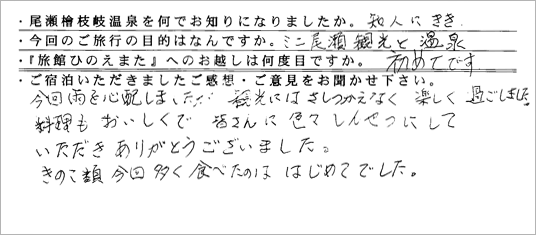 ・尾瀬檜枝岐温泉を何でお知りになりましたか。知人にきき
・今回のご旅行の目的はなんですか。ミニ尾瀬観光と温泉
・『旅館ひのえまた』へのお越しは何度目ですか。初めてです
・ご宿泊いただきましたご感想・ご意見をお聞かせ下さい。
今回雨を心配しましたが 観光にはさしつかえなく 楽しく過ごしました
料理も おいしくで 皆さんに色々しんせつにして
いただきありがとうございました。
きのこ類今回多く食べたのは はじめてでした。